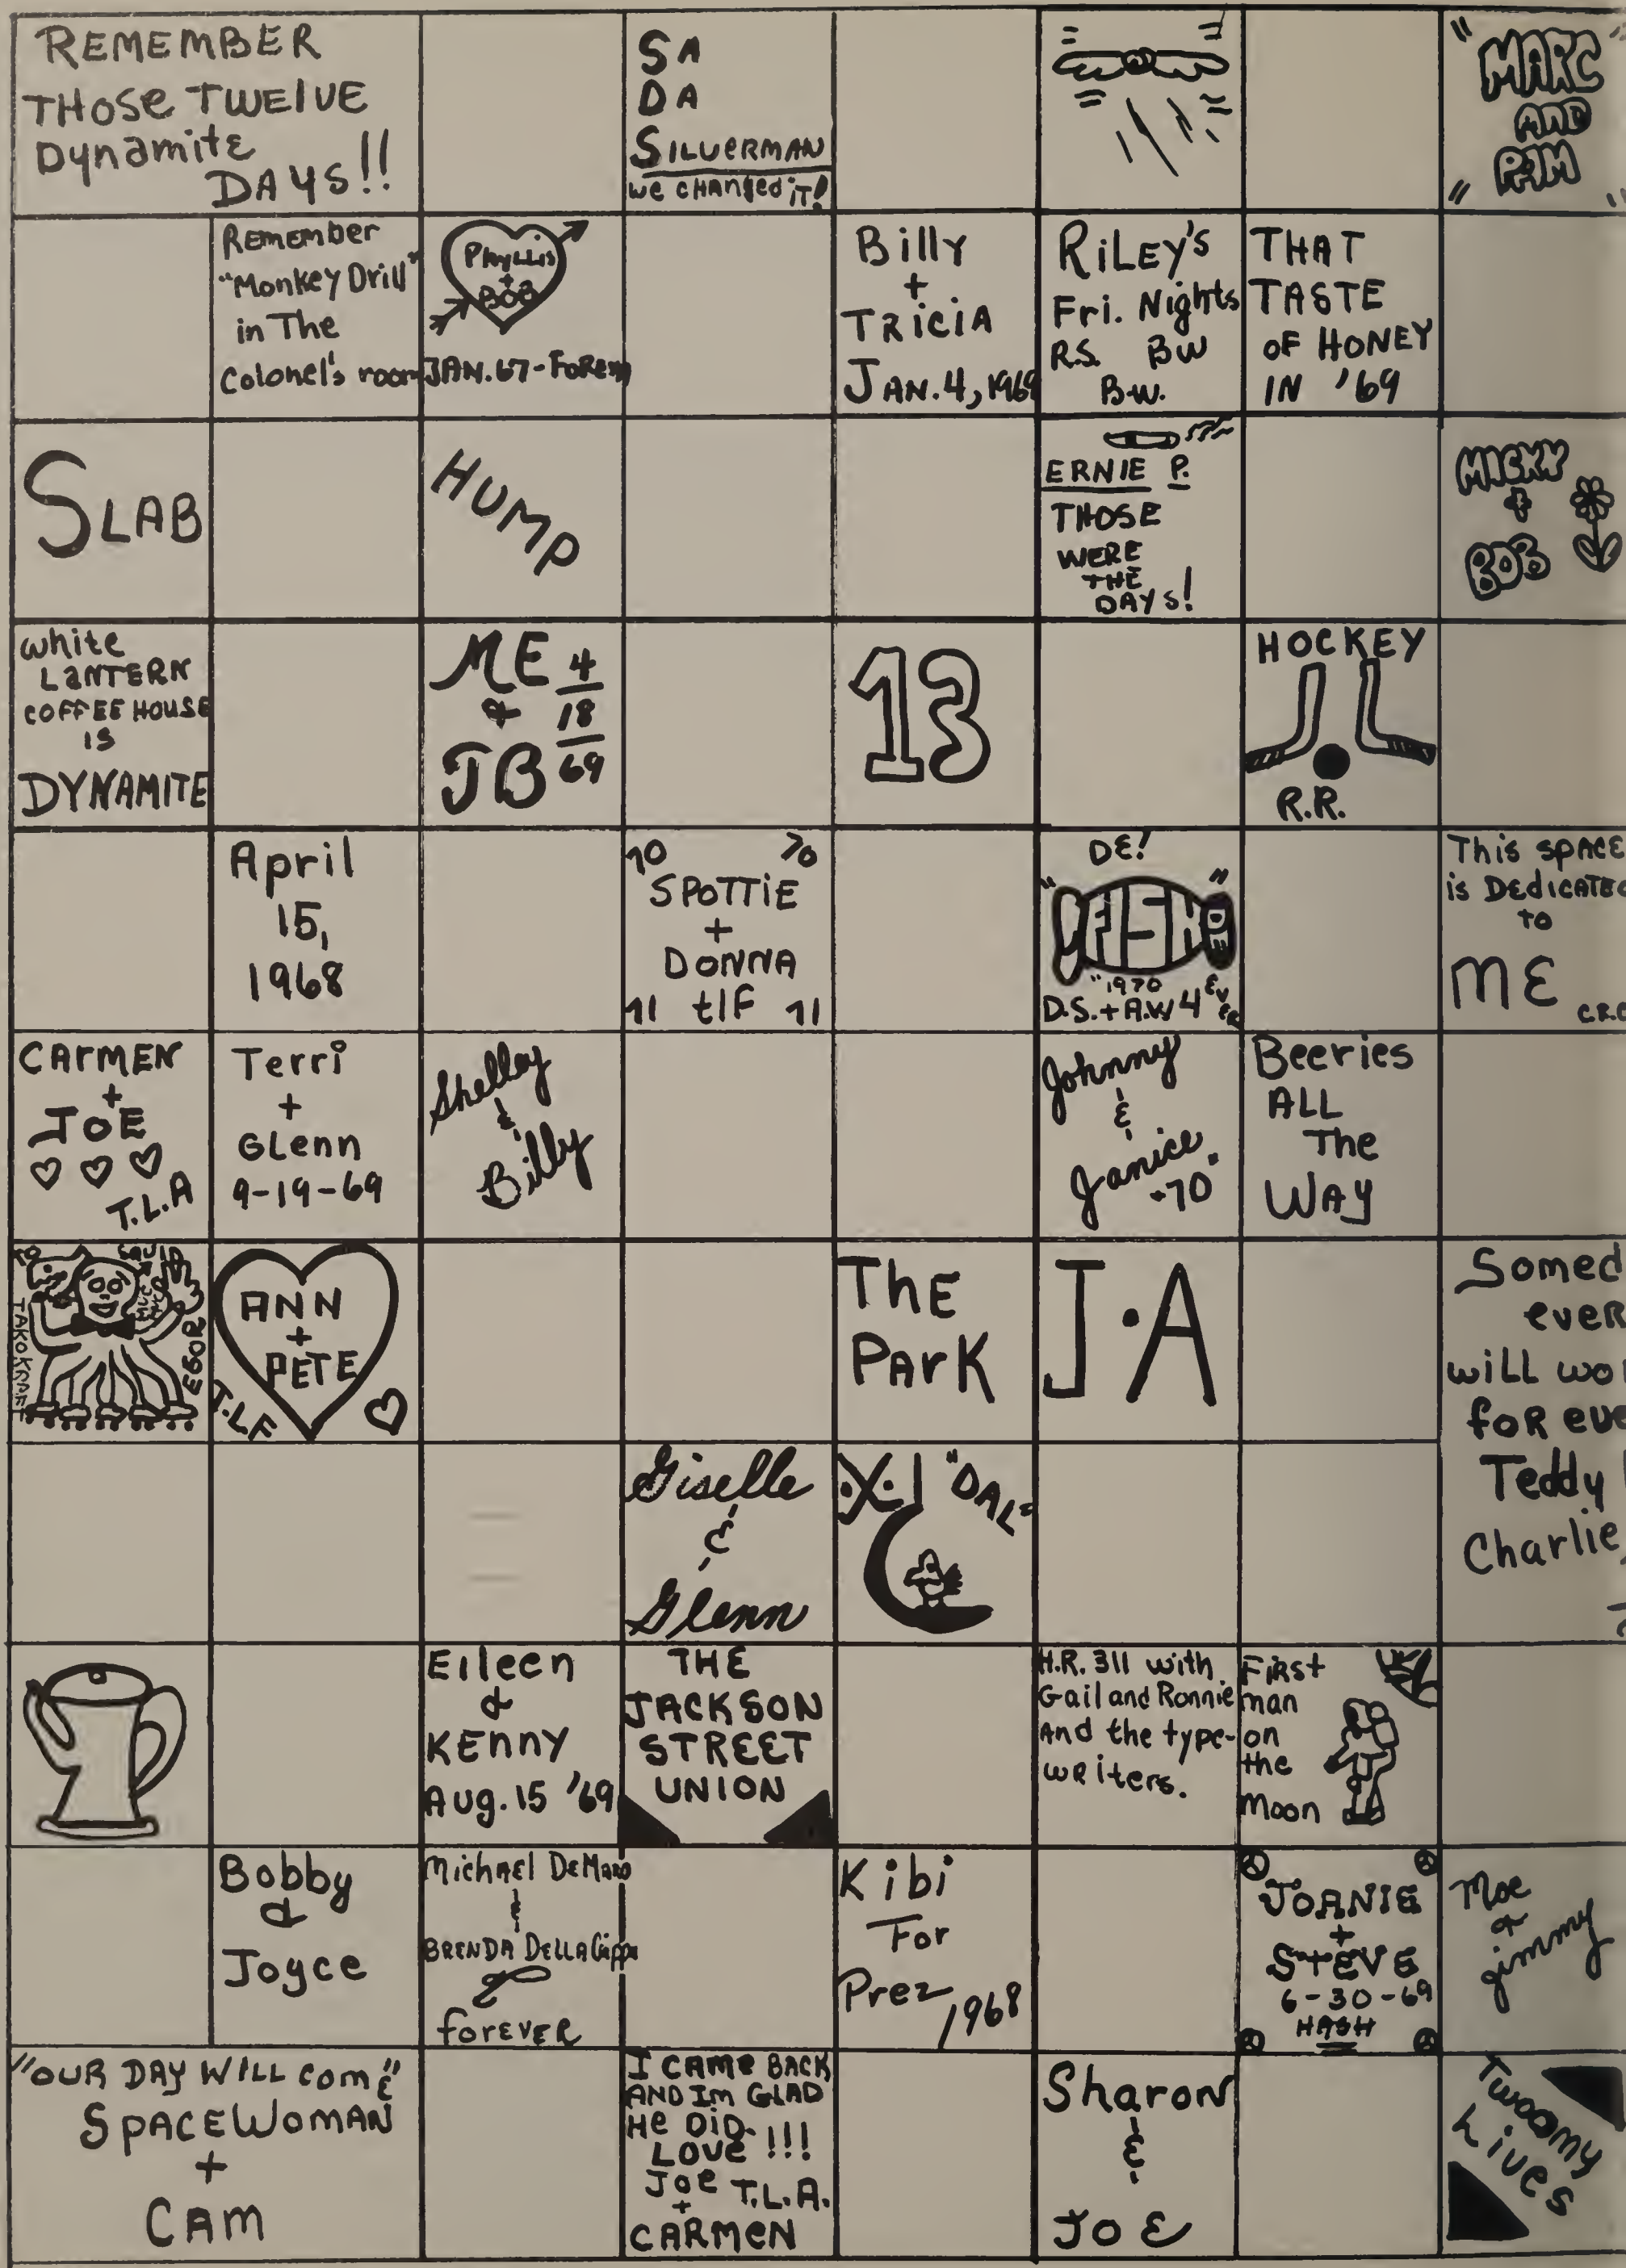 REMEMBER
THOSE TWELVE
DYNAMITE
DAYS!!
SA
DA
SILVERMAN
WE CHANGED IT!
"MARC
AND
PAM"
REMEMBER
"Monkey Drill"
in The
Colonel's room
PHYLLIS
+
BOB
JAN. 67-FOREVER
Billy
+
TRICIA
JAN. 4, 1969
RILEY'S
Fri. Nights
R.S. BW
B.W.
THAT
TASTE
OF HONEY
IN '69
SLAB
HUMP
ERNIE P.
THOSE
WERE
THE
DAYS!
MICKY
+
BOB
white
LANTERN
COFFEE HOUSE
IS
DYNAMITE
ME 4
& 18
JB 69
13
HOCKEY
R.R.
April
15,
1968
70 70
SPOTTIE
+
DONNA
71 tlF 71
DE!
"FISH"
"1970
D.S. + A.W 4 EVER
This SPACE
is DEDICATED
to
ME C.R.C
CARMEN
+
JOE
T.L.A
Terri
+
Glenn
9-19-69
Shelley
&
Billy
Johnny
&
Janice
-70
Beeries
ALL
The
WAY
SQUID
EGOR
ANN
+
PETE
T.L.F
THE
PARK
J.A
Somed
ever
will wo
for eve
Teddy
Charlie
Giselle
&
Glenn
"DAL"
Eileen
&
KENNY
Aug. 15 '69
THE
JACKSON
STREET
UNION
H.R. 311 with
Gail and Ronnie
And the type-
writers.
First
man
on
the
Moon
Bobby
&
Joyce
Michael DeMaso
&
BRENDA
forever
Kibi
For
Prez
1968
JOANIE
+
STEVE
6-30-69
HASH
Moe
&
jimmy
"OUR DAY WILL COME"
SPACEWOMAN
+
CAM
I CAME BACK
AND IM GLAD
HE DID.
LOVE !!!
JOE T.L.A.
+
CARMEN
Sharon
&
JOE
Twoomy
Lives